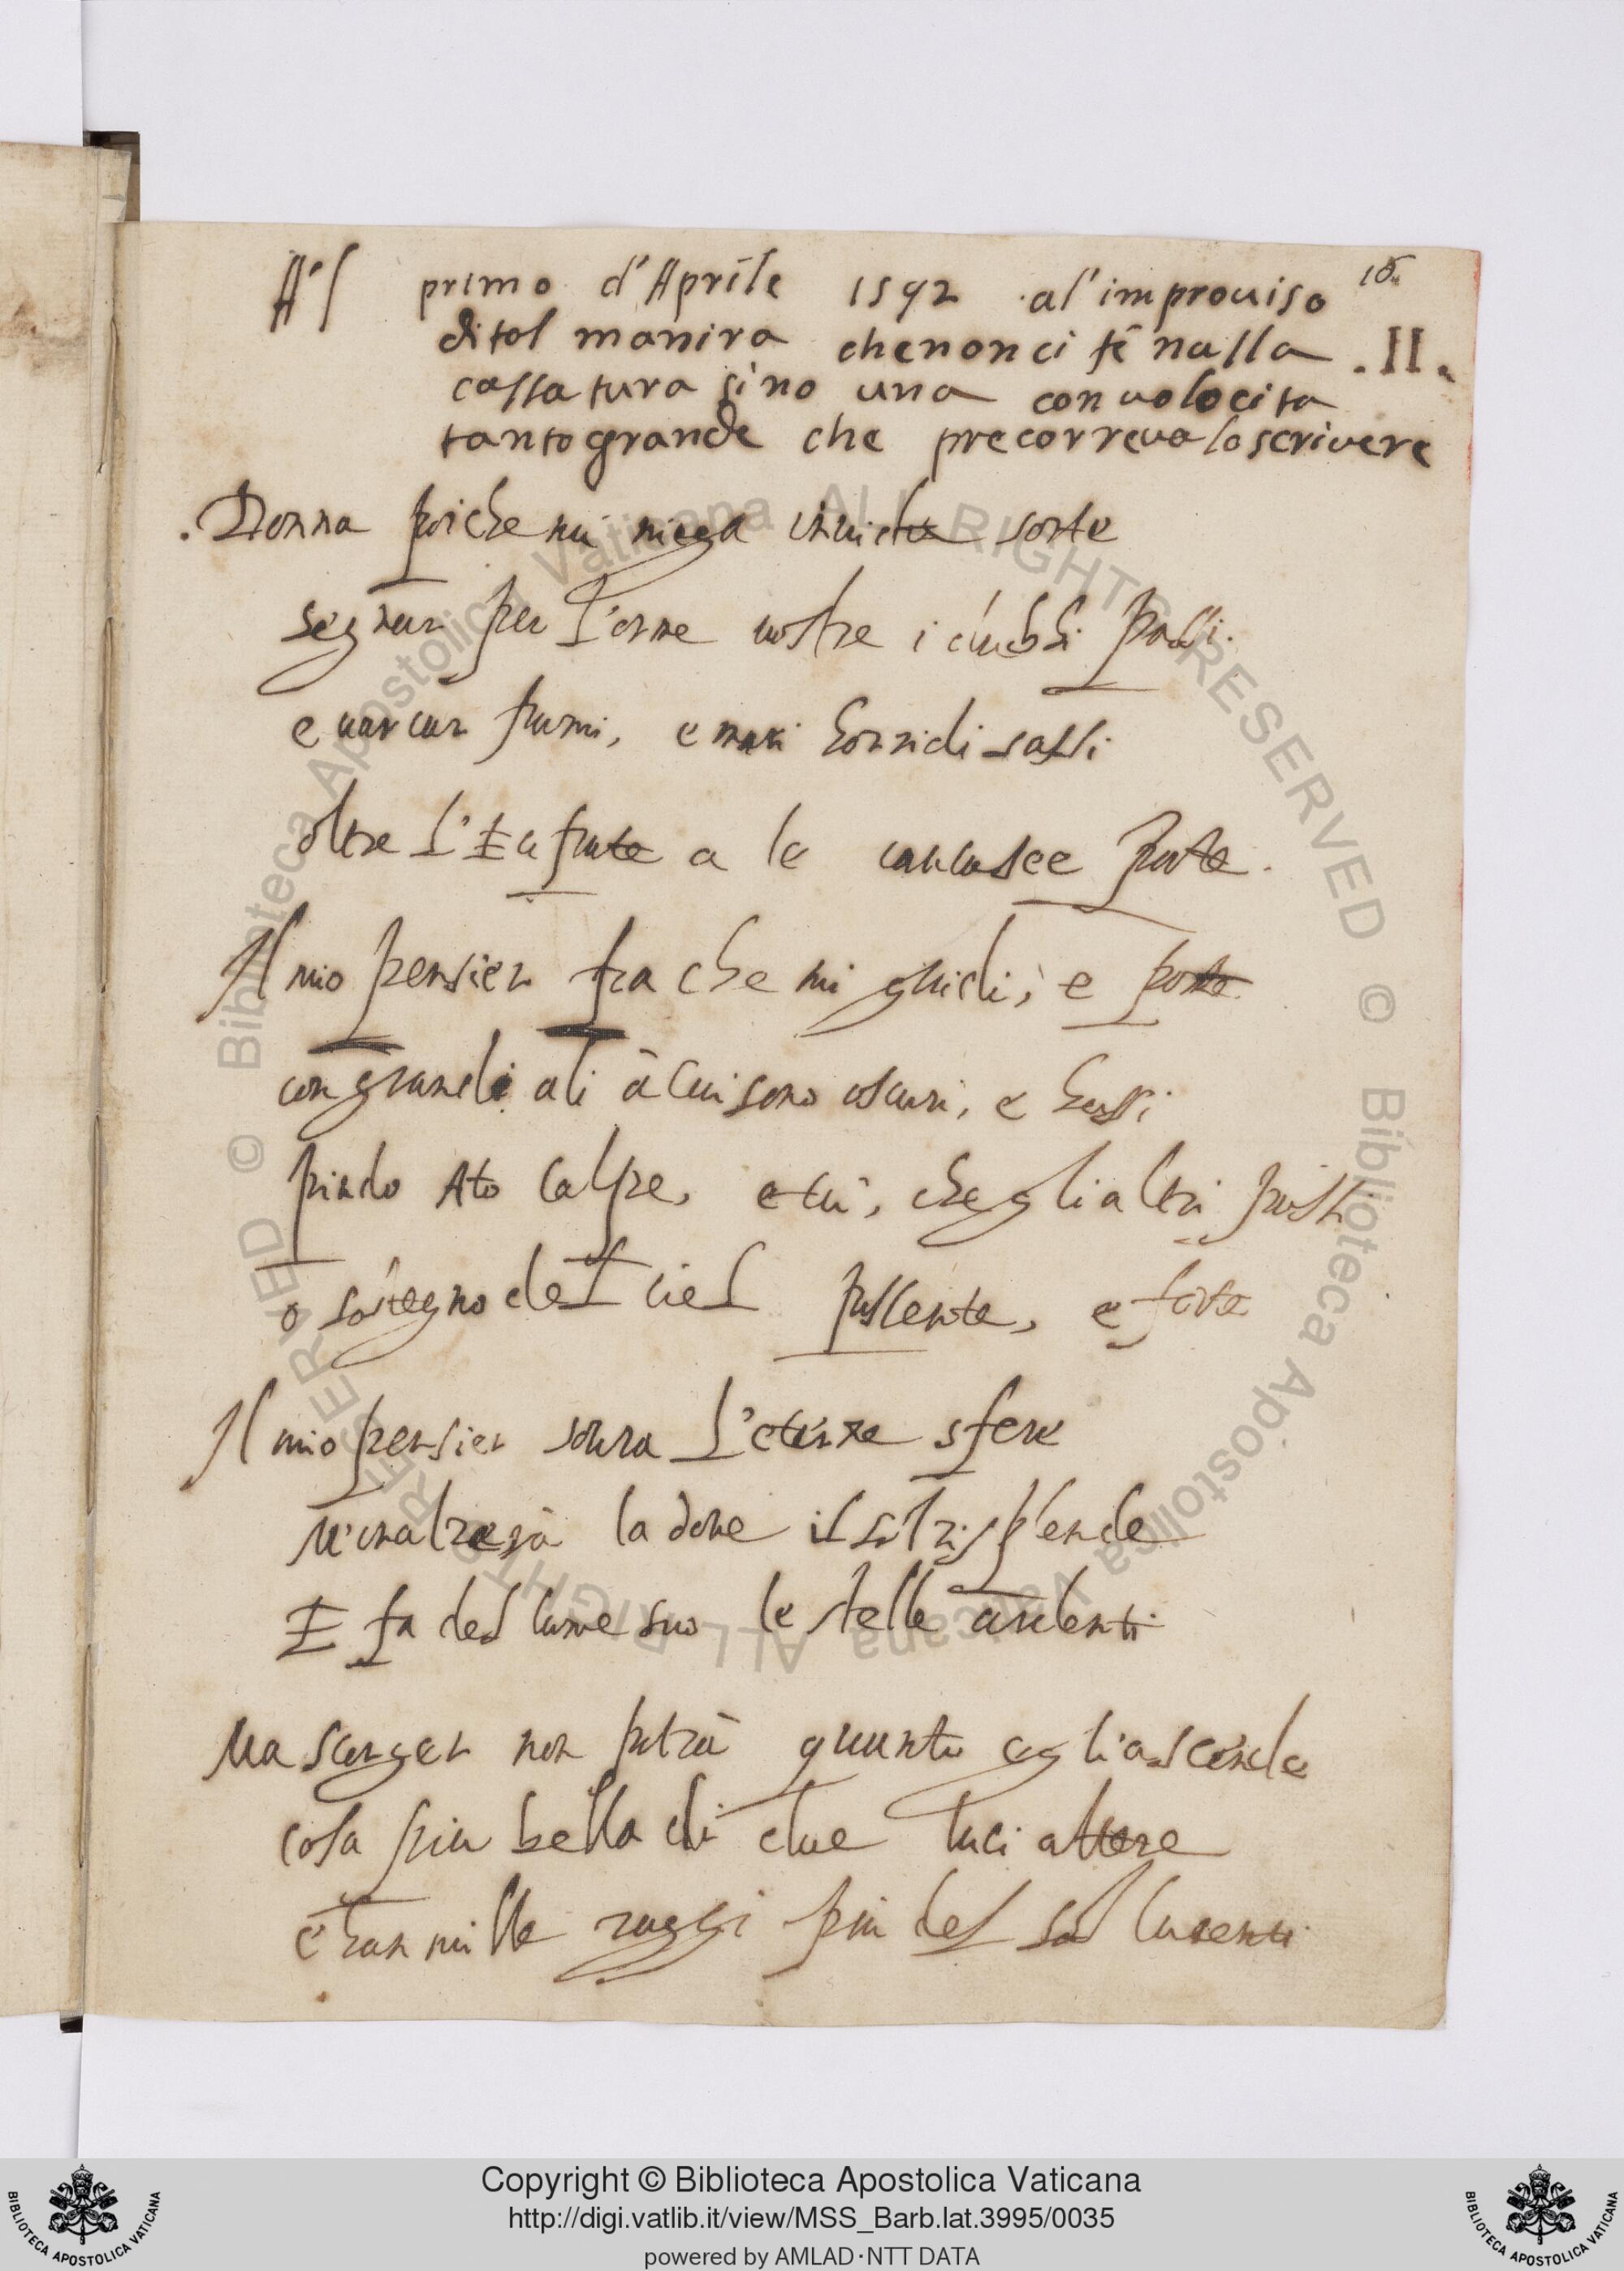 A'l primo d'Aprile 1592 al'improuiso 16.
di tal manira che non ci fé nulla .II.
cassatura sino una con uolocita
tanto grande che precorreua lo scrivere
Donna poiche mi niega inuida sorte
segnar per l'orme uostre i dubbi passi.
e uarcar fiumi, e mari horridi sassi
oltre l'Eufrate a le caucasee porte.
Il mio pensier fia che mi guidi, e porte
con grandi ali à cui sono oscuri, e bassi
pindo Ato Calpe, e tu, che gli altri passi
o sostegno del ciel possente, e forte
Il mio pensier soura l'eterne sfere
M'inalzerà la doue il sol risplende
E fa del lume suo le stelle ardenti
Ma scorger non potrà quanto egli ascende
cosa piu bella di due luci altere
e han mille raggi piu del sol lucenti
Copyright © Biblioteca Apostolica Vaticana
http://digi.vatlib.it/view/MSS_Barb.lat.3995/0035
powered by AMLAD·NTT DATA
BIBLIOTECA APOSTOLICA VATICANA
BIBLIOTECA APOSTOLICA VATICANA
© Biblioteca Apostolica Vaticana ALL RIGHTS RESERVED © Biblioteca Apostolica Vaticana ALL RIGHTS RESERVED